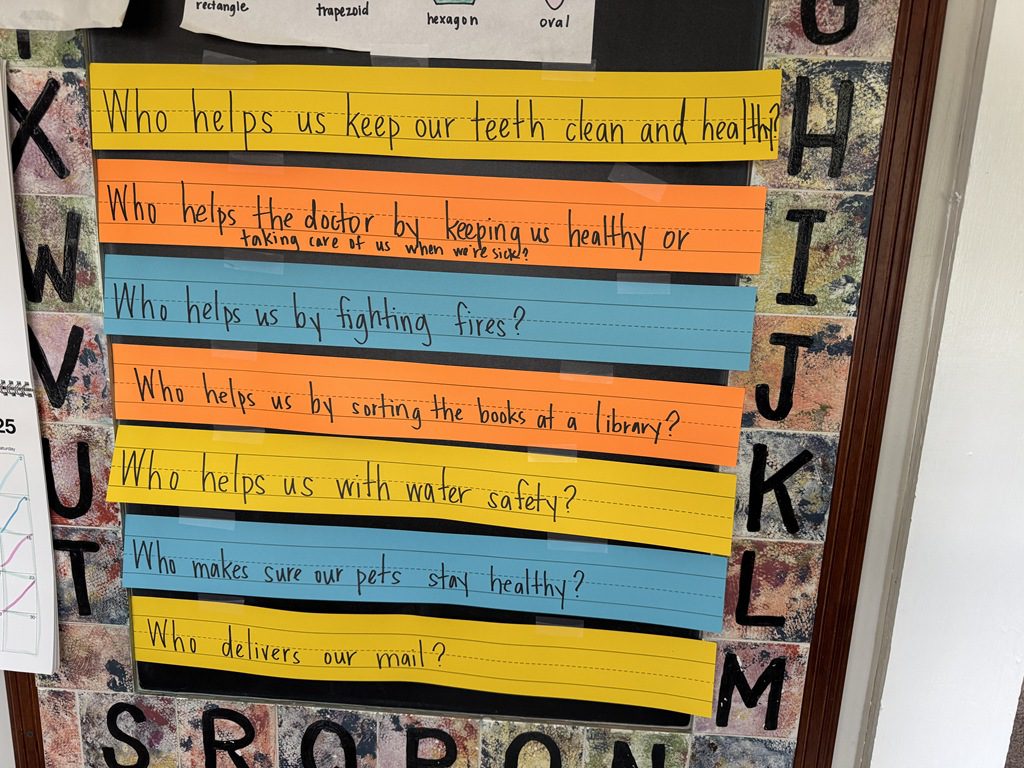 rectangle trapezoid hexagon oval
Who helps us keep our teeth clean and healthy?
Who helps the doctor by keeping us healthy or
taking care of us when we're sick?
Who helps us by fighting fires?
Who helps us by sorting the books at a library?
Who helps us with water safety?
Who makes sure our pets stay healthy?
Who delivers our mail?
G
H
I
J
K
L
M
N
O
P
Q
R
S
T
U
V
W
X
25
Saturday